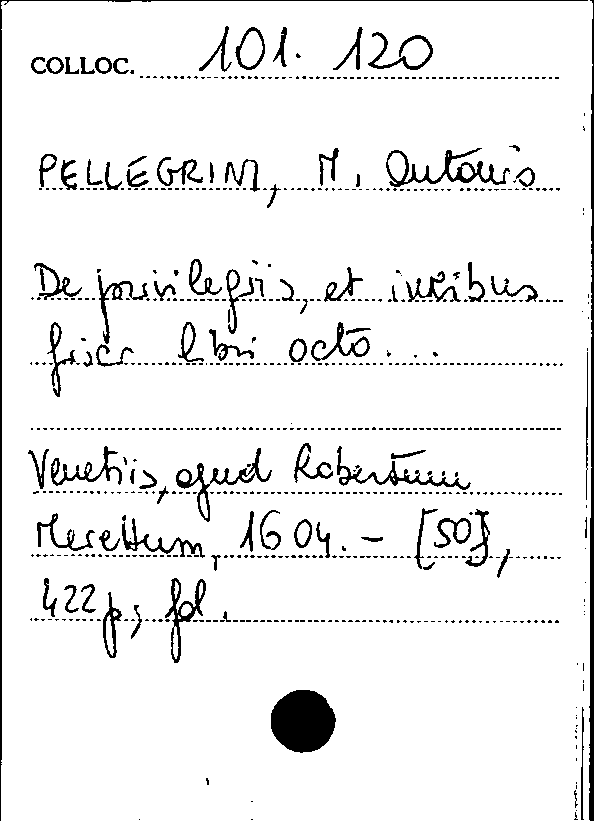 COLLOC. 101. 120
PELLEGRINI, M. Antonio
De privilegiis, et iuribus
fisci libri octo...
Venetiis, apud Robertum
Meiettum, 1604. - [50],
422 p; fol.